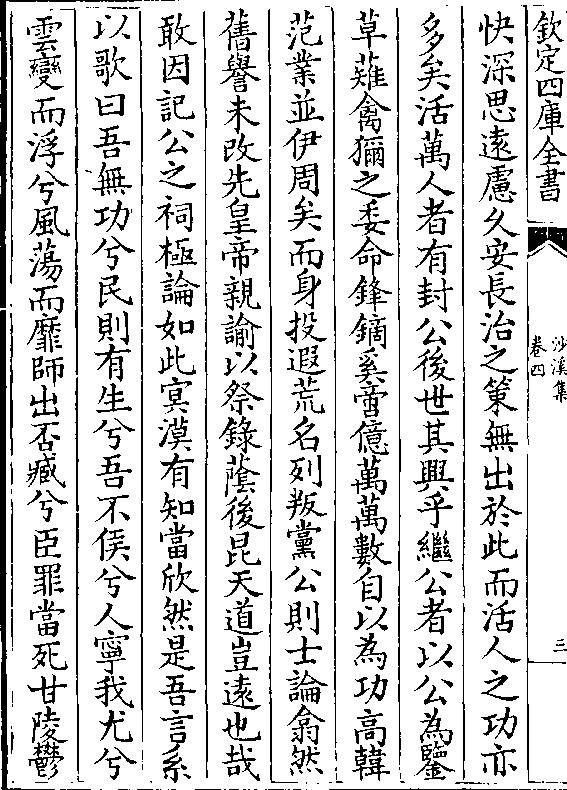 欽定四庫全書
沙溪集
卷四
三
快深思遠慮久安長治之策無出於此而活人之功亦
多矣活萬人者有封公後世其興乎繼公者以公為鑒
草薙禽獮之委命鋒鏑奚啻億萬萬數自以為功高韓
范業並伊周矣而身投遐荒名列叛黨公則士論翕然
舊譽未改先皇帝親諭以祭錄蔭後昆天道豈遠也哉
敢因記公之祠極論如此㝠漠有知當欣然是吾言系
以歌曰吾無功兮民則有生兮吾不侯兮人寧我尤兮
雲變而浮兮風蕩而靡師出否臧兮臣罪當死甘陵鬱